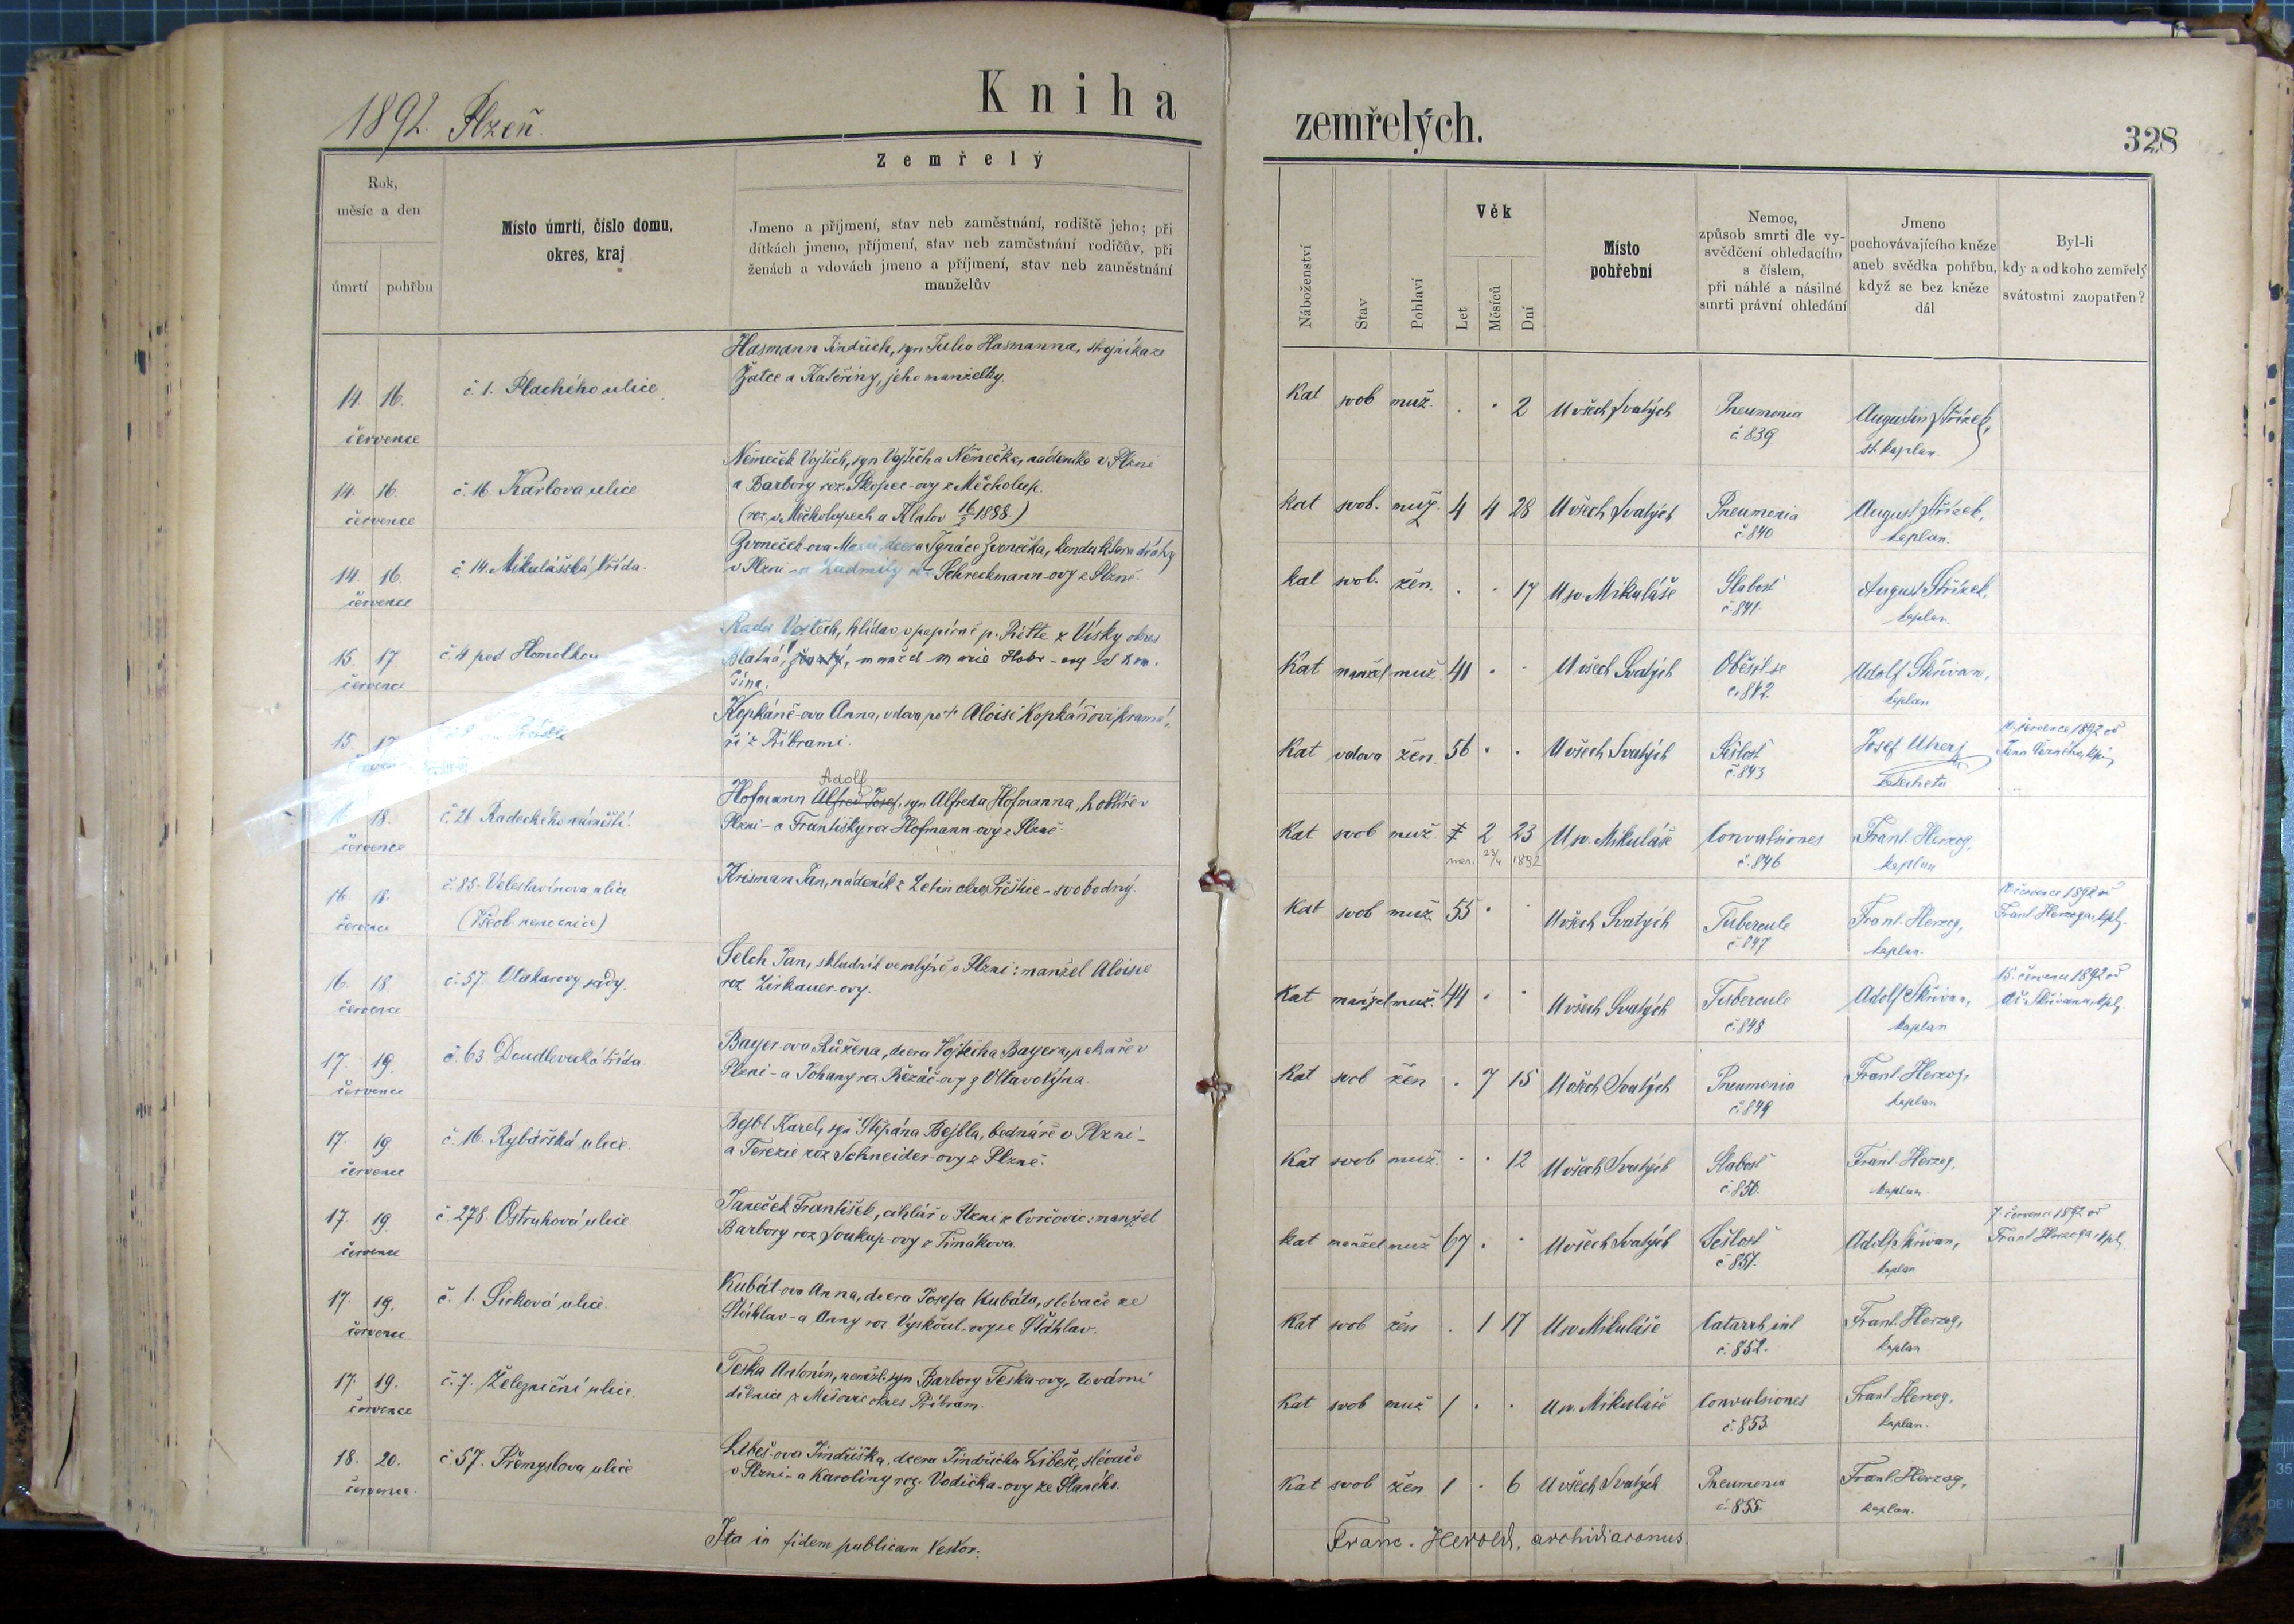 Kniha
1892. Plzeň.
Rok,
měsíc a den
úmrtí
pohřbu
Místo úmrtí, číslo domu,
okres, kraj
Zemřelý
Jmeno a příjmení, stav neb zaměstnání, rodiště jeho; při
dítkách jmeno, příjmení, stav neb zaměstnání rodičův, při
ženách a vdovách jmeno a příjmení, stav neb zaměstnání
manželův
Hasmann Jindřich, syn Julia Hasmanna, strojníka ze
Žatce a Kateřiny, jeho manželky.
14. 16.
července
č 1. Plachého ulice
Němeček Vojtěch, syn Vojtěcha Němečka, nádeníka v Plzni
a Barbory roz. Skopec-ovy z Měcholup.
(roz. v Měcholupech u Klatov 16/2 1888.)
14. 16.
července
č. 16 Karlova ulice
Zvoneček-ova dcera Ignáce Zvonečka, konduktora dráhy
v Plzni - a Ludmily roz Schreckmann-ovy z Plzně.
14. 16.
července
č. 14. Mikulášská třída.
Vojtěch, hlídač v papírně p. Piette z Vísky okres
Blatná, manžel Marie
15. 17.
července
č. 4 pod Homolkou
Kopkáně-ova Anna, vdova po † Aloisi Kopkáňovi, kramá-
ři z Příbrami.
15. 17
Adolf
Hofmann Alfred Josef, syn Alfreda Hofmanna, hoblíře v
Plzni - a Františky roz Hofmann-ovy z Plzně.
18.
července
č. 21 Radeckého náměstí.
Krisman Jan, nádeník z Letin okres Přeštice - svobodný.
16. 18.
července
č. 85. Veleslavínova ulice
(Všeob. nemocnice)
Selch Jan, skladník ve mlýně v Plzni: manžel Aloisie
roz Zirkauer-ovy.
16. 18.
července
č. 57. Otakarovy sady.
Bayer-ova Růžena, dcera Vojtěcha Bayera, pekaře v
Plzni - a Johany roz. Řezáč-ovy z Vltavotýna.
17. 19.
července
č. 63 Doudlevecká třída.
Bejbl Karel, syn Štěpána Bejbla, bednáře v Plzni -
a Terezie roz Schneider-ovy z Plzně.
17. 19.
července
č. 16. Rybářská ulice.
Janeček František, cihlář v Plzni z Cvrčovic: manžel
Barbory roz Soukup-ovy z Timákova.
17. 19.
července
č. 278. Ostruhová ulice
Kubát-ova Anna, dcera Josefa Kubáta, slévače ze
Štáhlav - a Anny roz Vyskočil-ovy ze Štáhlav.
17. 19.
července
č. 1. Sirková ulice.
Teska Antonín, nemžl. syn Barbory Teska-ovy, tovární
dělnice z Mišovic okres Příbram.
17. 19.
července
č. 7. Železniční ulice.
Libeš-ova Jindřiška, dcera Jindřicha Libeše, slévače
v Plzni - a Karoliny roz. Vodička-ovy ze
18. 20.
července.
č. 57. Přemyslova ulice
Ita in fidem publicam Vestor:
zemřelých.
328
Náboženství
Stav
Pohlaví
Věk
Let
Měsíců
Dní
Místo
pohřební
Nemoc,
způsob smrti dle vy-
svědčení ohledacího
s číslem,
při náhlé a násilné
smrti právní ohledání
Jmeno
pochovávajícího kněze
aneb svědka pohřbu,
když se bez kněze
dál
Byl-li
kdy a od koho zemřelý
svátostmi zaopatřen?
Kat svob muž. . . 2 U všech Svatých Pneumonia Augustin Střízek,
č 839 st. kaplan.
Kat svob. muž. 4 4 28 U všech Svatých Pneumonia August Střízek,
č 840 kaplan.
Kat svob. žen. . . 17 U sv. Mikuláše Slabost August Střízek,
č 841. kaplan.
Kat manžel muž 41 . . U všech Svatých Oběsil se Adolf Skřivan,
č. 842. kaplan
Kat vdova žen. 56 . . U všech Svatých Sešlost Josef Uherj
č. 843 katecheta
července 1892 od
Kat svob muž. 2 23 U sv. Mikuláše Convulsiones Frant. Herzog,
nar. 23/4 1892 č. 846 kaplan
Kat svob muž. 55 . . U všech Svatých Tubercule Frant. Herzog,
č. 847 kaplan.
července 1892 od
Frant Herzoga, kpl.
Kat manžel muž. 44 . . U všech Svatých Tubercule Adolf Skřivan,
č. 848 kaplan
15. července 1892 od
Ad. Skřivana, kpl.
Kat svob žen . 7 15 U všech Svatých Pneumonia Frant Herzog,
č. 849 kaplan
Kat svob muž. . . 12 U všech Svatých Slabost Frant. Herzog,
č. 850. kaplan.
Kat manžel muž 67 . . U všech Svatých Sešlost Adolf Skřivan,
č 851. kaplan
7. července 1892 od
Frant Herzoga, kpl.
Kat svob žen . 1 17 U sv. Mikuláše Catarrh int Frant. Herzog,
č. 852. kaplan
Kat svob muž 1 . . U sv. Mikuláše Convulsiones Frant Herzog,
č. 853. kaplan.
Kat svob žen. 1 . 6 U všech Svatých Pneumonia Frant Herzog,
č. 855. kaplan.
Franc. Herold, archidiaconus.